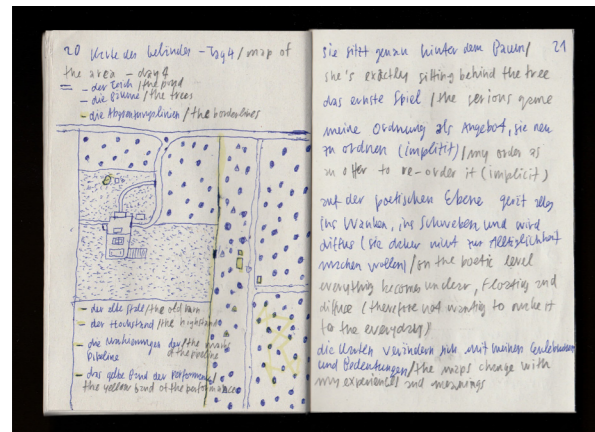 20 Karte des Geländes - Tag 4 / map of
the area - day 4
- der Teich / the pond
- die Bäume / the trees
- die Abgrenzungslinien / the borderlines
- der alte Stall / the old barn
- der Hochstand / the highstand
- die Markierungen der / the marks
Pipeline of the pipeline
- das gelbe Band der Performance /
the yellow band of the performance
21
sie sitzt genau hinter dem Baum /
she's exactly sitting behind the tree
das ernste Spiel / the serious game
meine Ordnung als Angebot, sie neu
zu ordnen (implizit) / my order as
an offer to re-order it (implicit)
auf der poetischen Ebene gerät alles
ins Wanken, ins Schweben und wird
diffus (sie daher nicht zur Alltäglichkeit
machen wollen) / on the poetic level
everything becomes unclear, floating and
diffuse (therefore not wanting to make it
to the everyday)
die Karten verändern sich mit meinen Erlebnissen
und Bedeutungen / the maps change with
my experiences and meanings